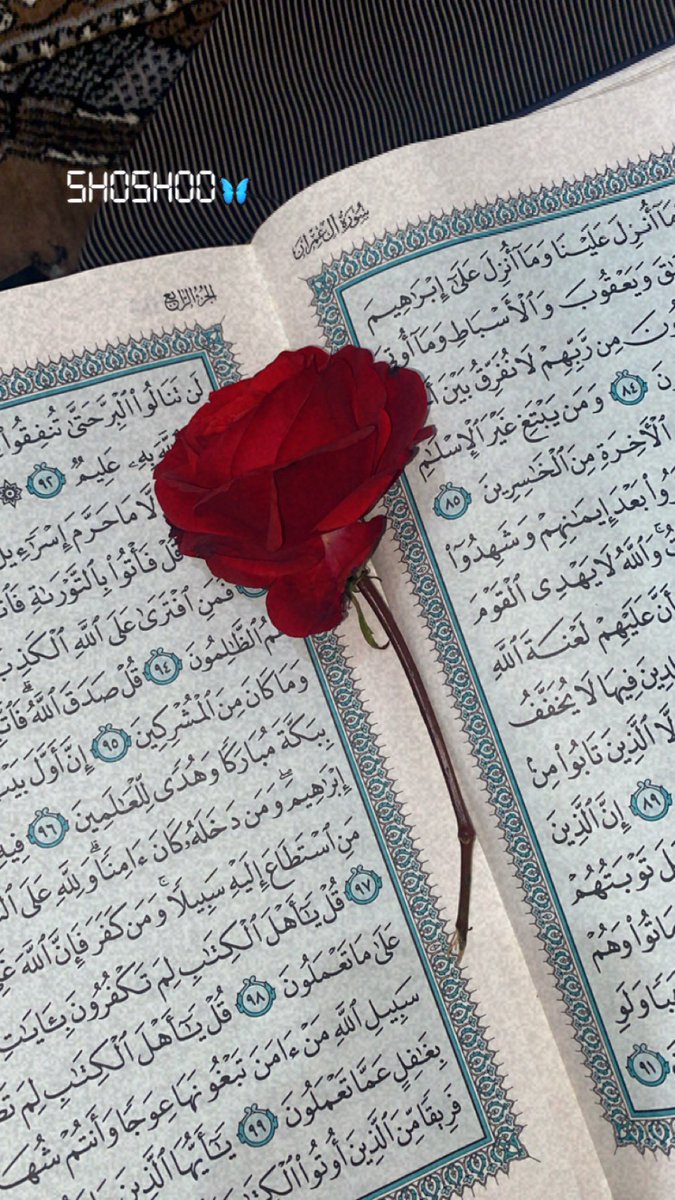 SHOSHOO🦋
سُورَةُ آلِ عِمْرَان
مَآ أُنزِلَ عَلَيْنَا وَمَآ أُنزِلَ عَلَىٰٓ إِبْرَٰهِيمَ
وَيَعْقُوبَ وَٱلْأَسْبَاطِ
مِن رَّبِّهِمْ لَا نُفَرِّقُ بَيْنَ
٨٤ وَمَن يَبْتَغِ غَيْرَ ٱلْإِسْلَٰمِ
ٱلْأَخِرَةِ مِنَ ٱلْخَٰسِرِينَ ٨٥
بَعْدَ إِيمَٰنِهِمْ وَشَهِدُوٓا۟
وَٱللَّهُ لَا يَهْدِى ٱلْقَوْمَ
أَنَّ عَلَيْهِمْ لَعْنَةَ ٱللَّهِ
فِيهَا لَا يُخَفَّفُ
ٱلَّذِينَ تَابُوا۟ مِنۢ
٨٩ إِنَّ ٱلَّذِينَ
تَوْبَتُهُمْ
وَهُمْ
وَلَوِ
٩١
الجُزْءُ الرَّابِعُ
لَن تَنَالُوا۟ ٱلْبِرَّ حَتَّىٰ تُنفِقُوا۟
بِهِۦ عَلِيمٌ ٩٢
مَا حَرَّمَ
فَأْتُوا۟ بِٱلتَّوْرَىٰةِ
فَمَنِ ٱفْتَرَىٰ عَلَى ٱللَّهِ ٱلْكَذِبَ
ٱلظَّٰلِمُونَ ٩٤ قُلْ صَدَقَ ٱللَّهُ
وَمَا كَانَ مِنَ ٱلْمُشْرِكِينَ ٩٥ إِنَّ أَوَّلَ
بِبَكَّةَ مُبَارَكًا وَهُدًى لِّلْعَٰلَمِينَ ٩٦
إِبْرَٰهِيمَ وَمَن دَخَلَهُۥ كَانَ ءَامِنًا وَلِلَّهِ عَلَى
مَنِ ٱسْتَطَاعَ إِلَيْهِ سَبِيلًا وَمَن كَفَرَ فَإِنَّ ٱللَّهَ
٩٧ قُلْ يَٰٓأَهْلَ ٱلْكِتَٰبِ لِمَ تَكْفُرُونَ بِـَٔايَٰتِ
عَلَىٰ مَا تَعْمَلُونَ ٩٨ قُلْ يَٰٓأَهْلَ ٱلْكِتَٰبِ لِمَ
سَبِيلِ ٱللَّهِ مَنْ ءَامَنَ تَبْغُونَهَا عِوَجًا وَأَنتُمْ
بِغَٰفِلٍ عَمَّا تَعْمَلُونَ ٩٩ يَٰٓأَيُّهَا ٱلَّذِينَ
فَرِيقًا مِّنَ ٱلَّذِينَ أُوتُوا۟